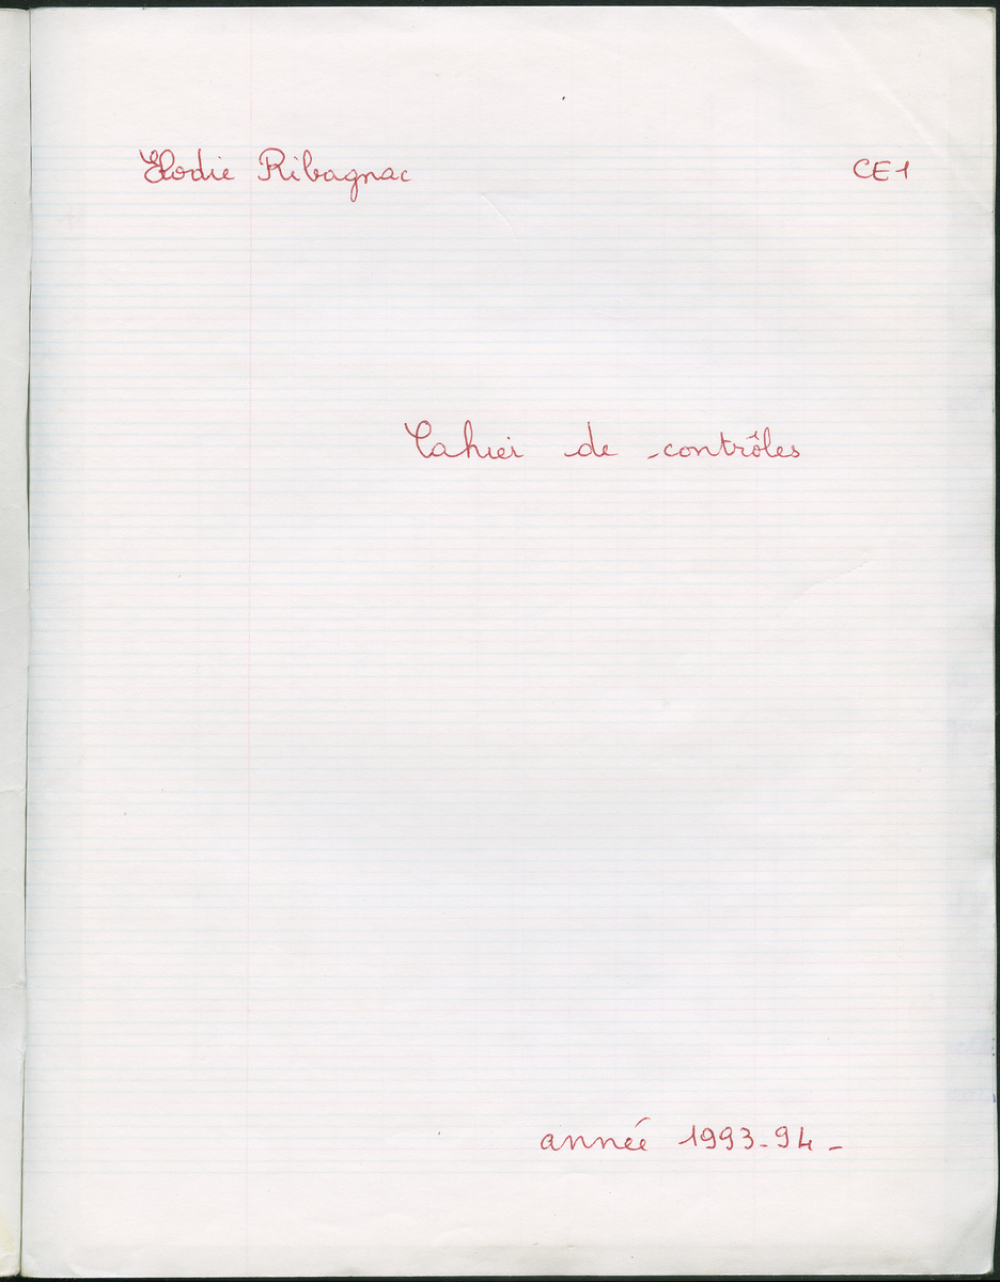 Elodie Ribagnac CE1
Cahier de contrôles
année 1993-94-